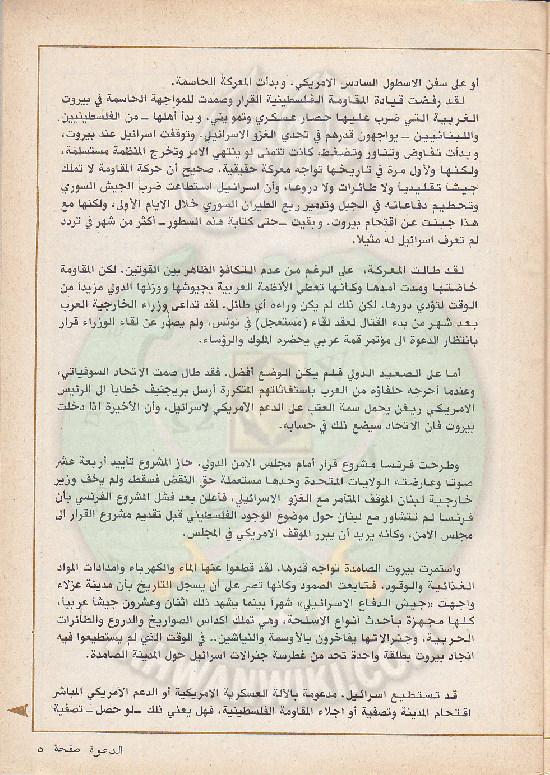 أو على سفن الاسطول السادس الامريكي، وبدأت المعركة الحاسمة.
لقد رفضت قيادة المقاومة الفلسطينية القرار وصمدت للمواجهة الحاسمة في بيروت
الغربية التي ضرب عليها حصار عسكري وتمويني، وبدأ أهلها ــ من الفلسطينيين
واللبنانيين ــ يواجهون قدرهم في تحدي الغزو الاسرائيلي. وتوقفت اسرائيل عند بيروت،
وبدأت تفاوض وتناور وتضغط، كانت تتمنى لو ينتهي الامر وتخرج المنظمة مستسلمة،
ولكنها ولأول مرة في تاريخها تواجه معركة حقيقية، صحيح أن حركة المقاومة لا تملك
جيشا تقليديا ولا طائرات ولا دروعا، وأن اسرائيل استطاعت ضرب الجيش السوري
وتحطيم دفاعاته في الجبل وتدمير ربع الطيران السوري خلال الايام الأولى، ولكنها مع
هذا جبنت عن اقتحام بيروت. وبقيت ــ حتى كتابة هذه السطور ــ أكثر من شهر في تردد
لم تعرف اسرائيل له مثيلا.
لقد طالت المعركة، على الرغم من عدم التكافؤ الظاهر بين القوتين، لكن المقاومة
خاضتها ومدت أمدها وكانها تعطي الأنظمة العربية بجيوشها ووزنها الدولي مزيداً من
الوقت لتؤدي دورها، لكن ذلك لم يكن وراءه أي طائل. لقد تداعى وزراء الخارجية العرب
بعد شهر من بدء القتال لعقد لقاء (مستعجل) في تونس، ولم يصدر عن لقاء الوزراء قرار
بانتظار الدعوة الى مؤتمر قمة عربي يحضره الملوك والرؤساء.
أما على الصعيد الدولي فلم يكن الوضع أفضل. فقد طال صمت الاتحاد السوفياتي،
وعندما أحرجه حلفاؤه من العرب باستغاثاتهم المتكررة أرسل بريجنيف خطابا الى الرئيس
الامريكي ريغن يحمل سمة العتب على الدعم الامريكي لاسرائيل، وأن الأخيرة اذا دخلت
بيروت فان الاتحاد سيضع ذلك في حسابه.
وطرحت فرنسا مشروع قرار أمام مجلس الامن الدولي. حاز المشروع تأييد أربعة عشر
صوتا وعارضته الولايات المتحدة وحدها مستعملة حق النقض فسقط، ولم يخف وزير
خارجية لبنان الموقف المتآمر مع الغزو الاسرائيلي، فأعلن بعد فشل المشروع الفرنسي بأن
فرنسا لم تتشاور مع لبنان حول موضوع الوجود الفلسطيني قبل تقديم مشروع القرار الى
مجلس الامن، وكانه يريد أن يبرر الموقف الامريكي في المجلس.
واستمرت بيروت الصامدة تواجه قدرها. لقد قطعوا عنها الماء والكهرباء وامدادات المواد
الغذائية والوقود. فتابعت الصمود وكانها تصر على أن يسجل التاريخ بأن مدينة عزلاء
واجهت «جيش الدفاع الاسرائيلي» شهراً بينما يشهد ذلك اثنان وعشرون جيشاً عربياً،
كلها مجهزة بأحدث انواع الاسلحة، وهي تملك اكداس الصواريخ والدروع والطائرات
الحربية، وجنرالاتها يفاخرون بالأوسمة والنياشين.. في الوقت الذي لم يستطيعوا فيه
انجاد بيروت بطلقة واحدة تحد من غطرسة جنرالات اسرائيل حول المدينة الصامدة.
قد تستطيع اسرائيل. مدعومة بالآلة العسكرية الامريكية أو الدعم الامريكي المباشر
اقتحام المدينة وتصفية أو اجلاء المقاومة الفلسطينية، فهل يعني ذلك ــ لو حصل ــ تصفية
الدعوة صفحة ٥
IKHWANWIKI.COM